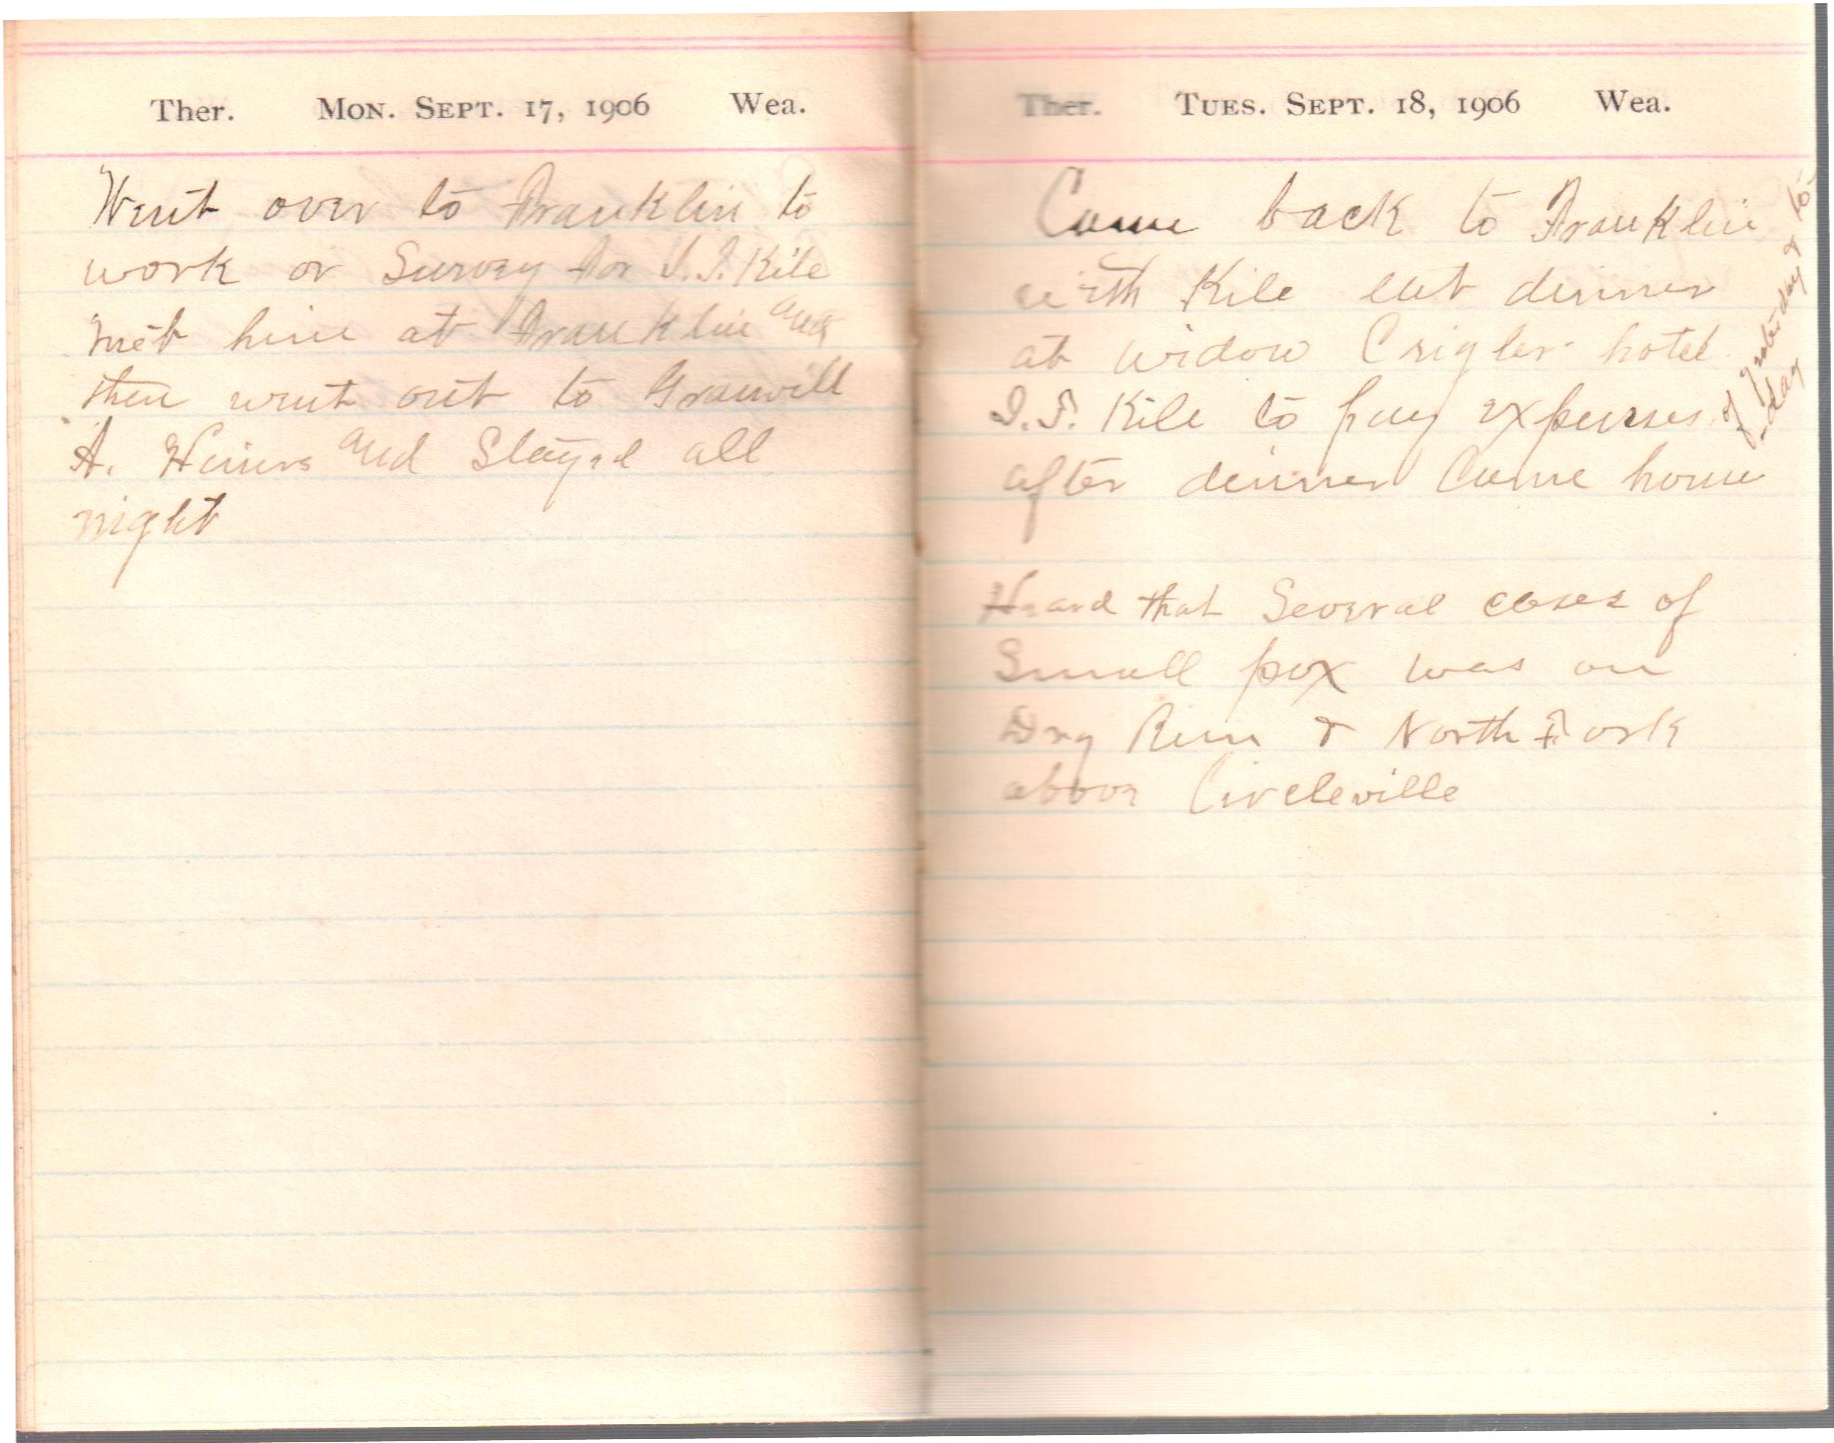 Ther. Mon. Sept. 17, 1906 Wea.
Went over to Franklin to
work or Survey for I. F. Kile
met him at Franklin and
then went out to Granvill
A. and Stayed all
night
Ther. Tues. Sept. 18, 1906 Wea.
Came back to Franklin
with Kile eat dinner
at widow Crigler hotel
I. F. Kile to pay expenses
of yesterday & to-
-day
after dinner Came home
Heard that Several cases of
Small pox was on
Dry Run & North Fork
above Circleville